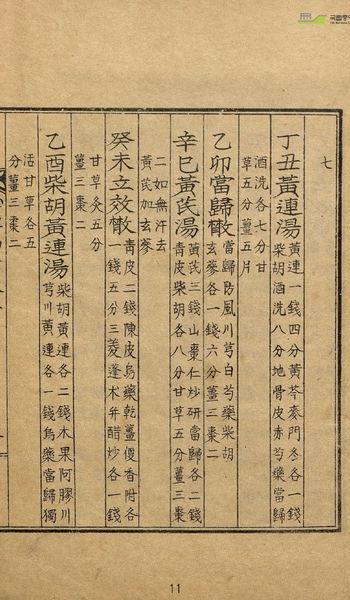 七
丁丑黃連湯黃連一錢四分黃芩麥門冬各一錢
柴胡酒洗八分地骨皮赤芍藥當歸
酒洗各七分甘
草五分薑五片
乙卯當歸散當歸防風川芎白芍藥柴胡
玄參各一錢六分薑三棗二
辛巳黃芪湯黃芪三錢山棗仁炒研當歸各二錢
青皮柴胡各八分甘草五分薑三棗
二如無汗去
黃芪加玄參
癸未立效散青皮二錢陳皮烏藥乾薑便香附各
一錢五分三菱蓬朮幷醋炒各一錢
甘草灸五分
薑三棗二
乙酉柴胡黃連湯柴胡黃連各二錢木果阿膠川
芎川黃連各一錢烏藥當歸獨
活甘草各五
分薑三棗二
11